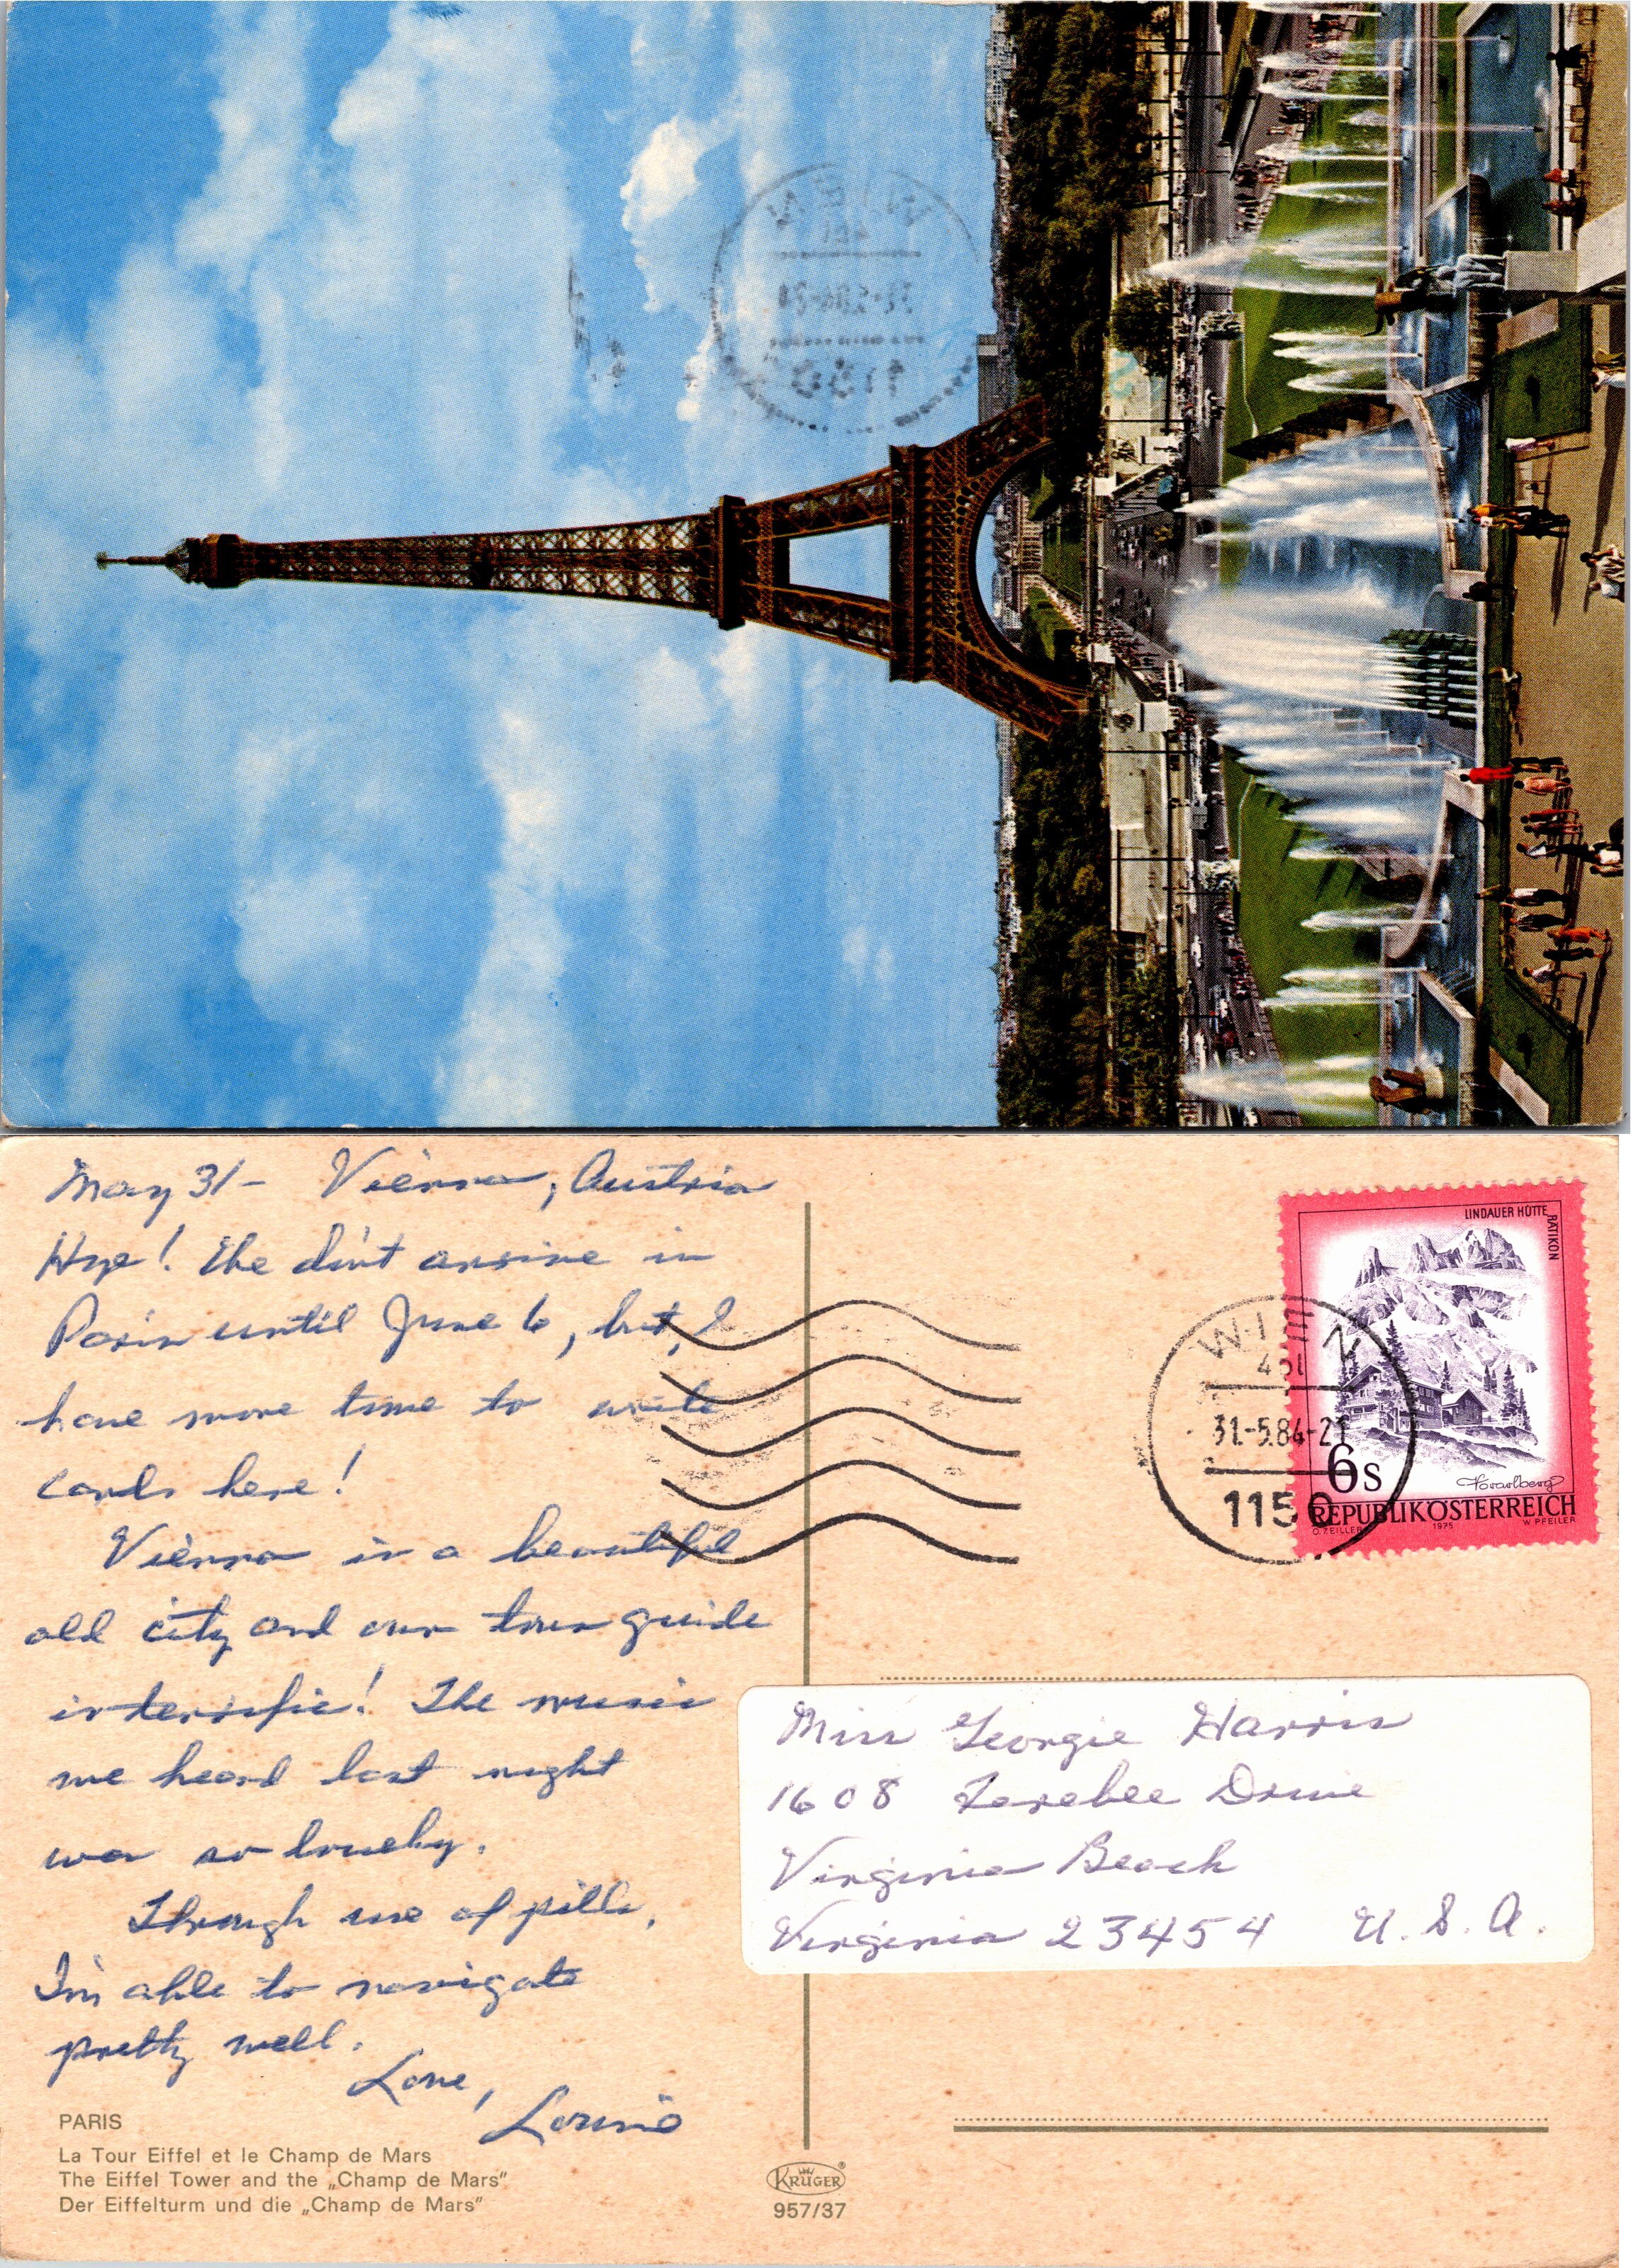 May 31 - Vienna, Austria
Hye! We don't arrive in
Paris until June 6, but, I
have more time to write
cards here!
Vienna is a beautiful
old city and our tour guide
is terrific! The music
we heard last night
was so lovely.
Through use of pills,
I'm able to navigate
pretty well.
Love,
PARIS
La Tour Eiffel et le Champ de Mars
The Eiffel Tower and the „Champ de Mars"
Der Eiffelturm und die „Champ de Mars"
KRÜGER®
957/37
LINDAUER HÜTTE
RÄTIKON
6s
Vorarlberg
REPUBLIK ÖSTERREICH
O. ZEILLER 1975 W. PFEILER
WIEN
31.-5.84-21
1150
Miss Georgie Harris
1608 Ferebee Drive
Virginia Beach
Virginia 23454 U.S.A.